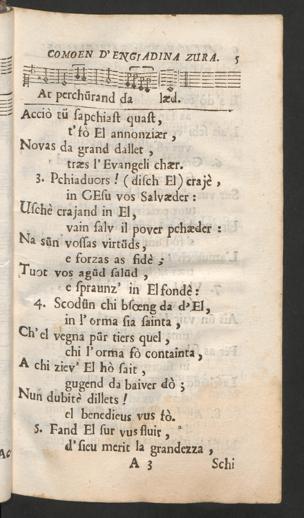 COMOEN D'ENGIADINA ZURA. 5
At perchürand da læd.
Acciò tü sapchiast quast,
t'fò El annonziær,
Novas da grand dallet,
træs l'Evangeli chær.
3. Pchiaduors! (disch El) crajè,
in GEsu vos Salvæder:
Uschè crajand in El,
vain salv il pover pchæder:
Na sün vossas virtüds,
e forzas as fidè;
Tuot vos agüd salüd,
e spraunz' in El fondè:
4. Scodün chi bsœng da d'El,
in l'orma sia sainta,
Ch'el vegna pür tiers quel,
chi l'orma fò containta,
A chi ziev' El hò sait,
gugend da baiver dò;
Nun dubitè dillets!
el benedieus vus fò.
5. Fand El sur vus fluir,
d'sieu merit la grandezza,
A 3 Schi